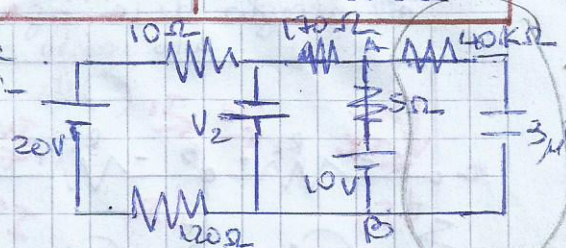 10Ω 170Ω A 40KΩ
20V V2 5Ω 3μ
10V
120Ω B